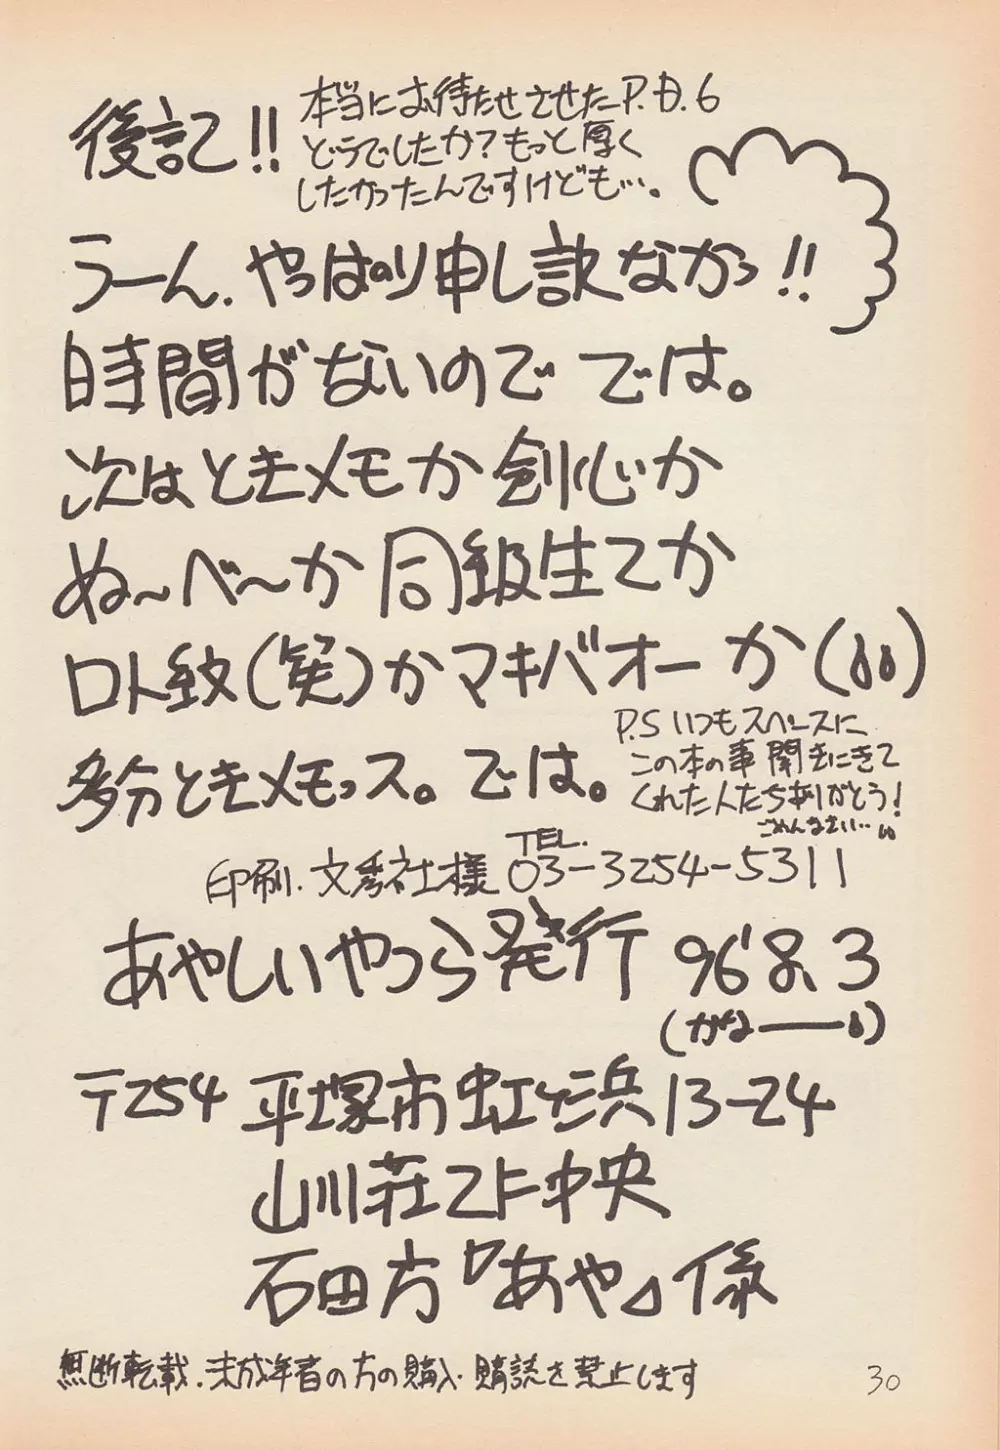 後記!!
本当にお待たせさせたP.D.6
どうでしたか?もっと厚く
したかったんですけども…。
うーん.やっぱり申し訳なかっ!!
時間がないので では。
次はときメモか剣心か
ぬ〜べ〜か同級生2か
ロト紋(笑)かマキバオーか(
多分ときメモっス。では。
P.S いつもスペースに
この本の事聞きにきて
くれた人たちありがとう!
ごめんなさい…
印刷.文秀社様 TEL. 03-3254-5311
あやしいやつら発行 96'8.3
(かなー)
〒254 平塚市虹ヶ浜13-24
山川荘2F中央
石田方『あや』係
無断転載.未成年者の方の購入.購読を禁止します
30